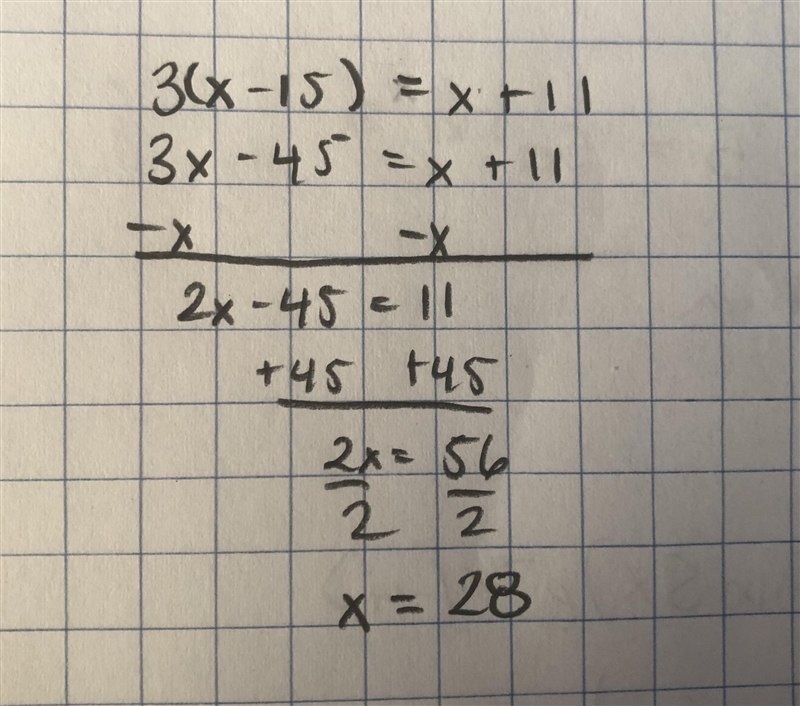 3(x - 15) = x + 11
3x - 45 = x + 11
-x -x
2x - 45 = 11
+45 +45
2x = 56
2 2
x = 28